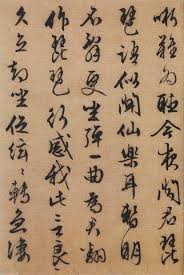 哳難為聽今夜聞君琵
琶語似聞仙樂耳暫明
莫辭更坐彈一曲為君翻
作琵琶行感我此言良
久立却坐促絃〻轉急淒